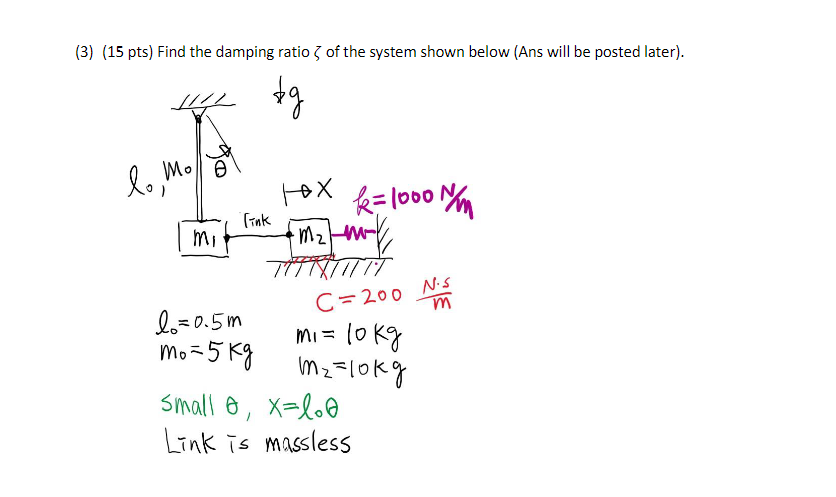 (3) (15 pts) Find the damping ratio ζ of the system shown below (Ans will be posted later).
g
l₀, m₀ θ
x k=1000 N/m
link
m₁ m₂
C=200 N·s/m
l₀=0.5m m₁=10kg
m₀=5kg m₂=10kg
small θ, x=l₀θ
Link is massless